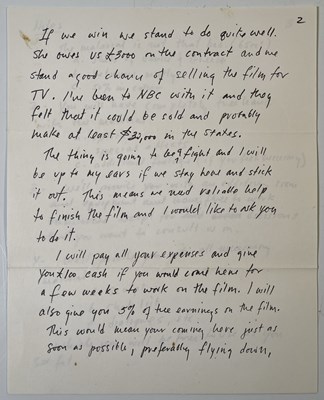 2
If we win we stand to do quite well.
She owes us £3000 on the contract and we
stand a good chance of selling the film for
TV. I've been to NBC with it and they
felt that it could be sold and probably
make at least $30,000 in the states.
The thing is going to be a fight and I will
be up to my ears if we stay here and stick
it out. This means we need reliable help
to finish the film and I would like to ask you
to do it.
I will pay all your expenses and give
you £100 cash if you would come here for
a few weeks to work on the film. I will
also give you 5% of the earnings on the film.
This would mean your coming here just as
soon as possible, preferably flying down,